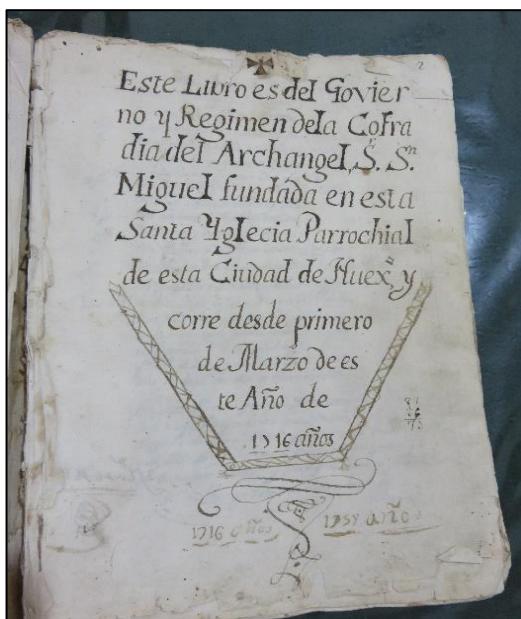 Este Libro es del Govier
no y Regimen dela Cofra
dia del Archangel, S.r S.n
Miguel fundada en esta
Santa Yglecia Parrochial
de esta Ciudad de Huex.o y
corre desde primero
de Marzo de es
te Año de
1716 años
1716 años